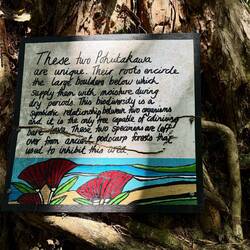 These two Pohutakawa
are unique. Their roots encircle
the large boulders below which
supply them with moisture during
dry periods. This biodiversity is a
symbiotic relationship between two organisms
and it is the only tree capable of
bare These two specimens are left
over from ancient podocarp forests that
used to inhibit this area